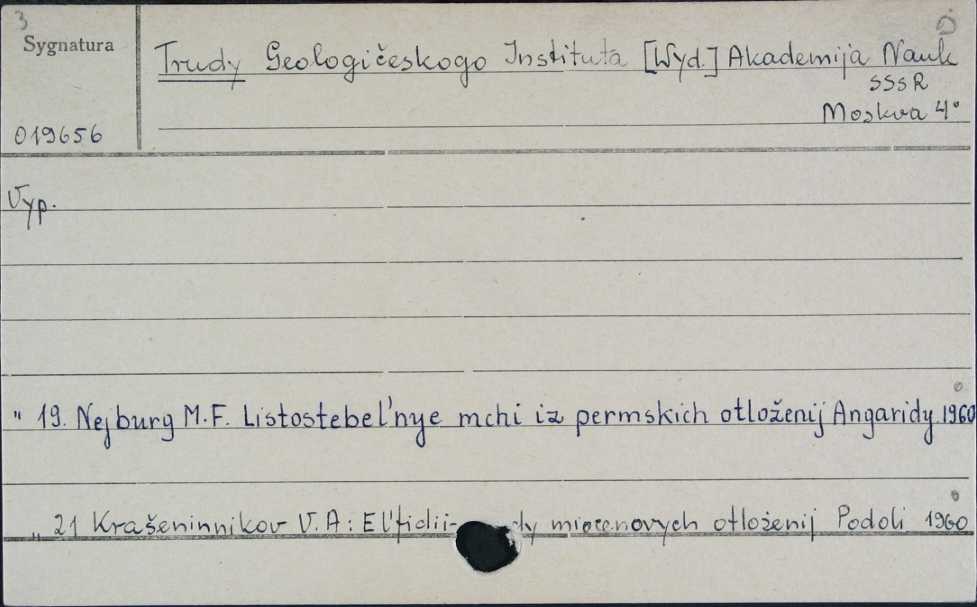 3
Sygnatura
Trudy Geologičeskogo Instituta [Wyd.] Akademija Nauk
SSSR
Moskva 4°
019656
Vyp.
" 19. Nejburg M.F. Listostebel'nye mchi iz permskich otloženij Angaridy. 1960
" 21 Krašeninnikov V.A: El'fidii- miocenovych otloženij Podoli 1960